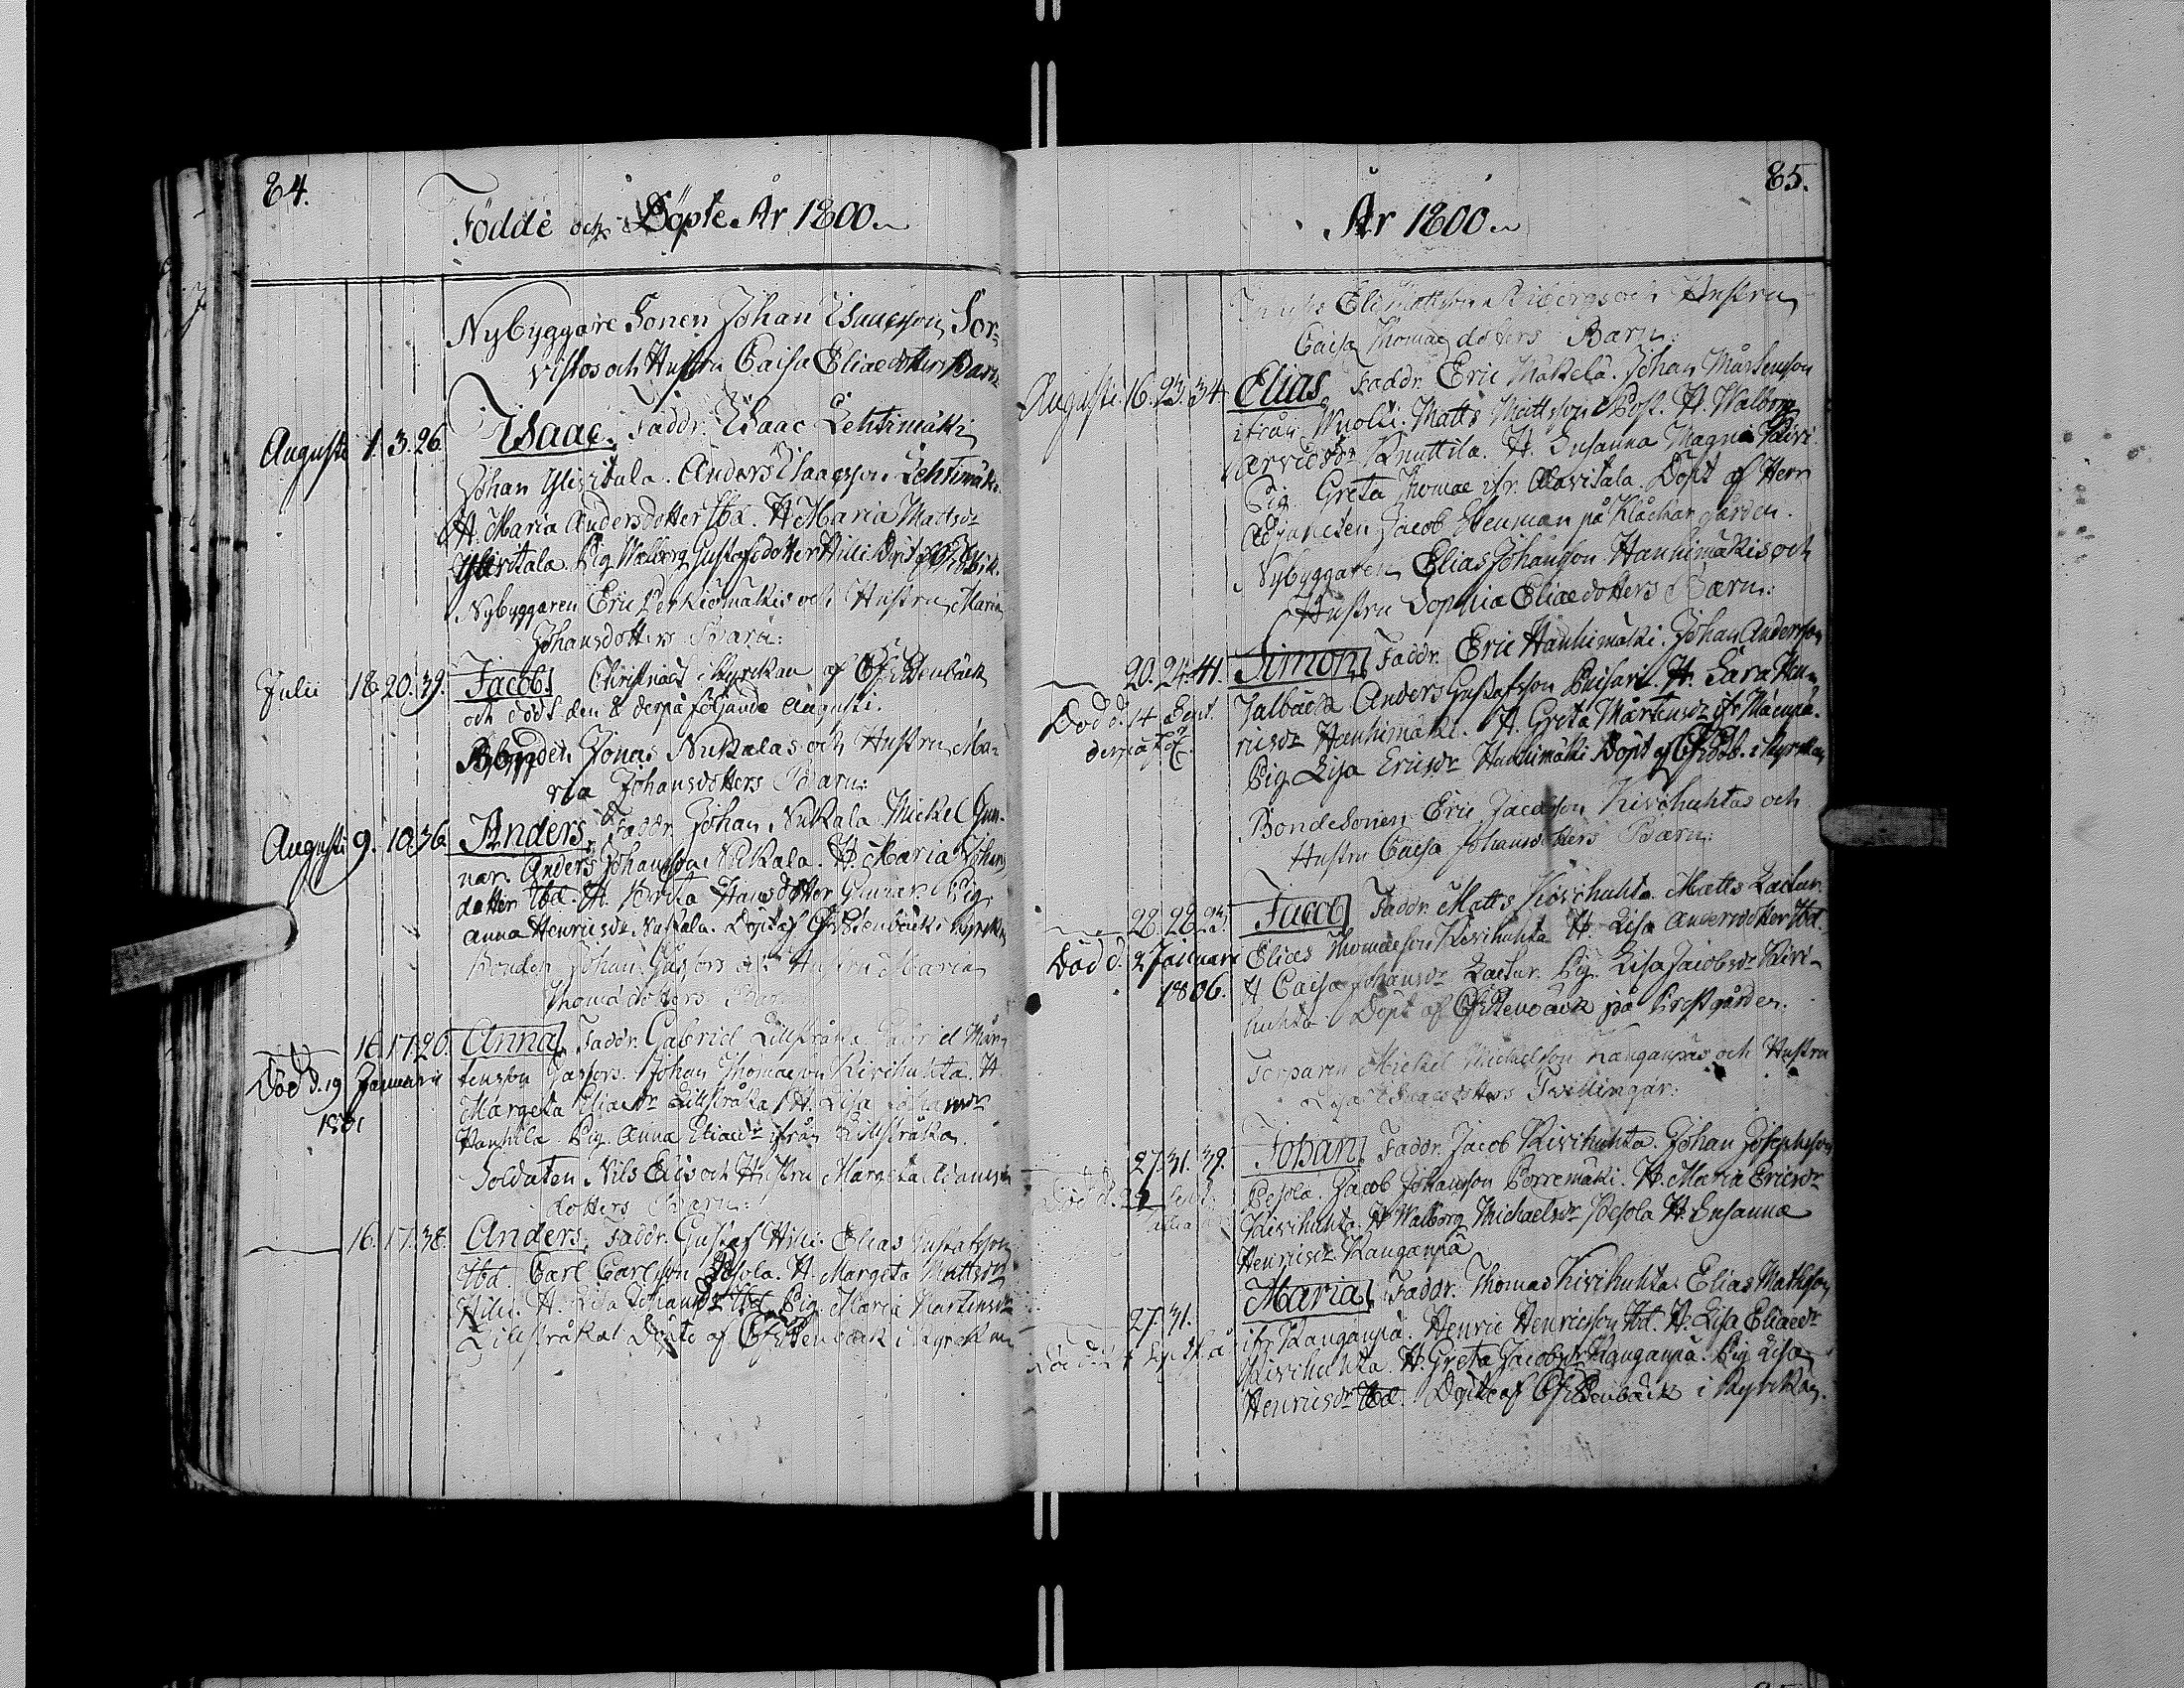 84.
Födde och Döpte År 1800.
Nybyggare Sonen Johan Isaacsson Sor-
vistos och Hustru Caisa Eliaedotters Barn
Augusti 1. 3. 26. Isaac. Faddr. Isaac Lehtimäki
Johan Ylivitala. Anders Isaacsson Lehtimäki.
H. Maria Andersdotter Ibd. H. Maria Mattsdr
Ylivitala. Pig. Walborg Gustafsdotter Hili Döpt af
Nybyggaren Eric Perkiömäkis och Hustru Maria
Johansdotters Barn:
Julii 18. 20. 39. Jacob. Christnadt i Kyrckan af Stenbäck
och dödt den 8 derpå följande Augusti.
Jonas Nukalas och Hustru Ma-
ria Johansdotters Barn:
Augusti 9. 10. 36. Anders. Faddr. Johan Nukala Mickel Gun-
nar. Anders Johansson Nukala. H. Maria Johans
dotter Ibd. H. Greta Hansdotter Gunnar. Pig.
Anna Henricsdr Nukala. Döpt af Stenbäck i Kyrckan
Bonden Johan Jaspers och Hustru Maria
Thomædotters Barn
16. 17. 20. Anna. Faddr. Gabriel Lillstråka Gabriel Mår-
Död d. 19 Januarii tensson Jaspers. Johan Thomasson Kivihuhta. H.
1801 Margeta Eliaedr Lillstråka. H. Lisa Johansdr
Panhila. Pig. Anna Eliaedr ifrån Lillstråka.
Soldaten Nils Elgs och Hustru Margeta
dotters Barn:
16. 17. 38. Anders. Faddr. Gustaf Hili. Elias Gustafsson
Ibd. Carl Carlsson Pesola. H. Margeta Mattsdr
Hili. H. Lisa Johansdr Ibd. Pig. Maria Martensdr
Lillstråka Döpte af Stenbäck i Kyrckan
85.
År 1800.
Eli Mattsson och Hustru
Caisa Thomaedotters Barn:
Augusti 16. 23. 34. Elias. Faddr. Eric Mäkelä. Johan Mårtensson
ifrån Wuolli. Matts Mattsson Post. H. Walborg
Arvidsdr Knuttila. H. Susanna Magni Kivi.
Pig. Greta Thomae ifr. Alavitala. Döpt af Herr
Adjuncten Jacob Stenman på Klåckargården.
Nybyggaren Elias Johansson Hanhimäkis och
Hustru Sophia Eliaedotters Barn:
20. 24. 41. Simon. Faddr. Eric Hanhimäki. Johan Andersson
Död d. 14 Sept. Jalbäck Anders Gustafsson Puisari. H. Sara Hen-
derpå föl. ricsdr Hanhimäki. H. Greta Mårtensdr ifr
Pig. Lisa Ericsdr Hanhimäki Döpt af i Kyrckan
Bondesonen Eric Jacobsson Kivihuhtas och
Hustru Caisa Johansdotters Barn:
28. 28. 23. Jacob. Faddr. Matts Kivihuhta. Matts Lactur.
Död d. 2 Januarii Elias Thomaesson Kivihuhta H. Lisa Andersdotter Ibd.
1806. H. Caisa Johansdr Lactur. Pig. Lisa Jacobsdr Kivi-
huhta. Döpt af Stenbäck på Prestgården.
Torparen Mickel Michelsson Kanganpäs och Hustru
Lisa Isaacsdotters Tvillingar:
27. 31. 39. Johan. Faddr. Jacob Kivihuhta. Johan Josephsson
Död d. Sept. Pesola. Jacob Johansson Porremäki. H. Maria Ericsdr
Kivihuhta. H. Walborg Michaelsdr Pesola H. Susanna
Henricsdr Kanganpä
27. 31. Maria. Faddr. Thomas Kivihuhta. Elias Mathsson
ifr. Kanganpä. Henric Henricsson Ibd. H. Lisa Eliaedr
Kivihuhta. H. Greta Jacobsdr Kanganpä. Pig. Lisa
Henricsdr Ibd. Döpte af Stenbäck i Kyrckan.